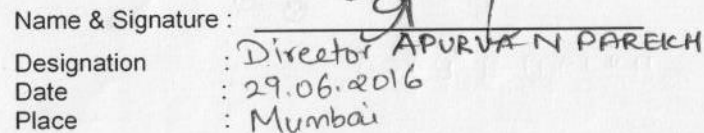 Name & Signature :
Designation : Director APURVA N PAREKH
Date : 29.06.2016
Place : Mumbai